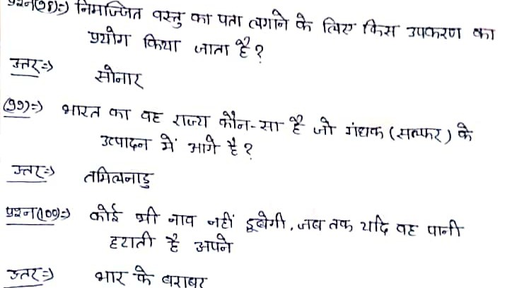 प्रश्न(98)=> निमज्जित वस्तु का पता लगाने के लिए किस उपकरण का
प्रयोग किया जाता है?
उत्तर=> सोनार
(99)=> भारत का वह राज्य कौन-सा है जो गंधक (सल्फर) के
उत्पादन में आगे है?
उत्तर=> तमिलनाडु
प्रश्न(100)=> कोई भी नाव नहीं डूबेगी, जब तक यदि वह पानी
हटाती है अपने
उत्तर=> भार के बराबर